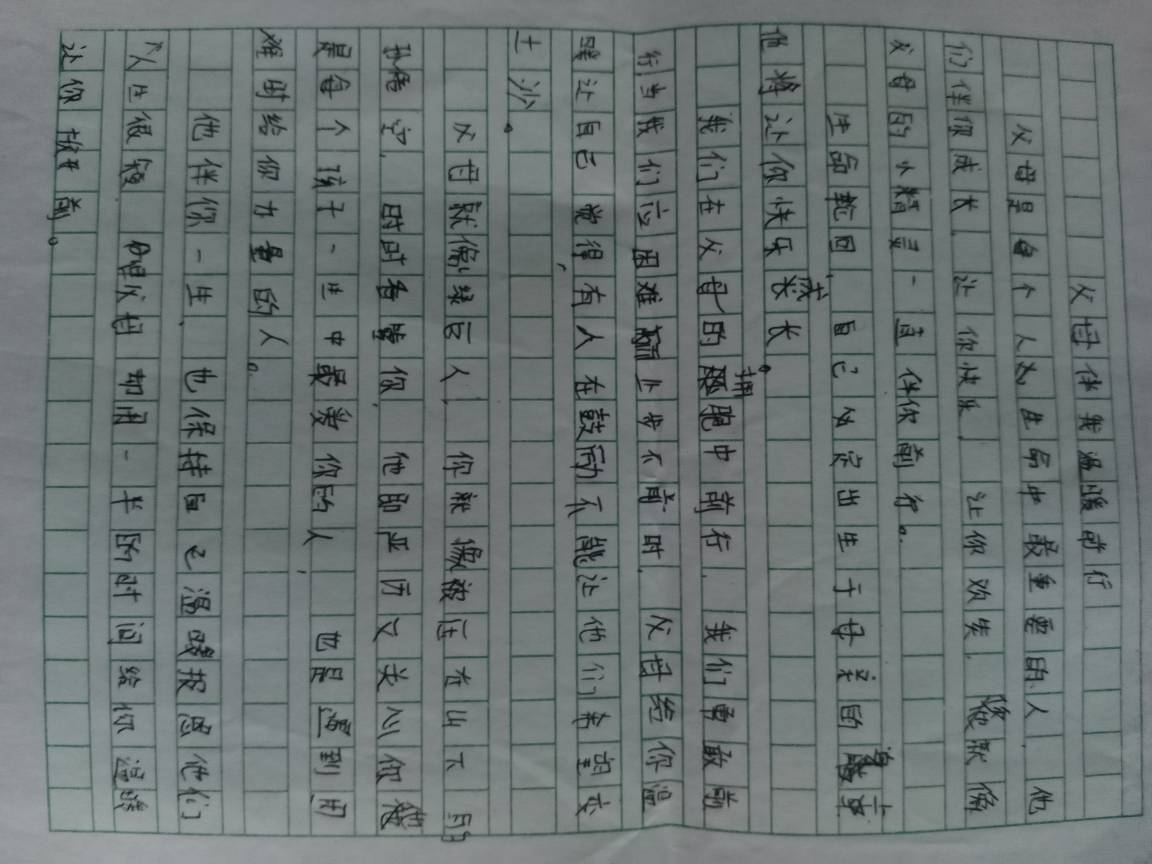 父母伴我温暖前行
父母是每个人的生命中最重要的人，他
们伴你成长，让你快乐，让你欢失，就像
父母的小精灵一直伴你前行。
生命轮回，自己必定出生于母亲的
他将让你快乐成长
我们在父母的拥抱中前行，我们勇敢前
行当我们应困难而止步不前时，父母给你温
暖让自己觉得有人在鼓励不能让他们希望变
土沙。
父母就像绿巨人，你就像被压在山下的
孙悟空，时时看管你，他即严历又关心你他
是每个孩子一生中最爱你的人，也是遇到困
难时给你力量的人。
他伴你一生，也保持自己温暖报恩他们
人生很短 但父母却用一半的时间给你温暖
让你 前。